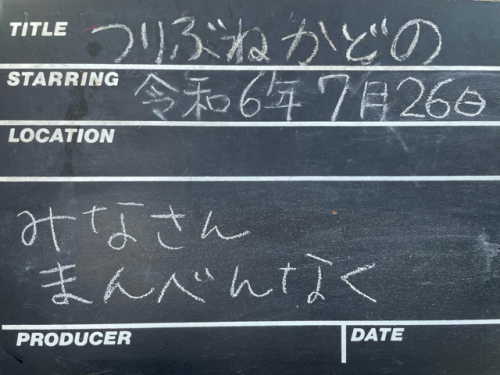 TITLE つりぶねかどの
STARRING 令和6年7月26日
LOCATION
みなさん
まんべんなく
PRODUCER DATE